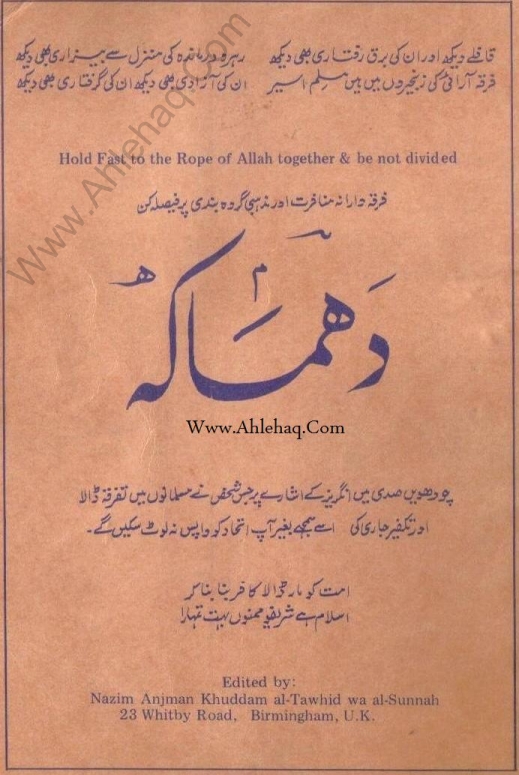 قافلے دیکھ اور ان کی برق رفتاری بھی دیکھ رہرو درماندہ کی منزل سے بیزاری بھی دیکھ
فرقہ آرائی کی زنجیروں میں ہیں مسلم اسیر ان کی آزادی بھی دیکھ ان کی گرفتاری بھی دیکھ
Hold Fast to the Rope of Allah together & be not divided
فرقہ دارانہ منافرت اور مذہبی گروہ بندی پر فیصلہ کن
دھماکہ
Www.Ahlehaq.Com
چودھویں صدی میں انگریز کے اشارے پر جس شخص نے مسلمانوں میں تفرقہ ڈالا
اور تکفیر جاری کی اسے سمجھے بغیر آپ اتحاد کو واپس نہ لوٹ سکیں گے۔
امت کو ڈالا کافر بنا بنا کر
اسلام ہے ممنوں بہت تمہارا
Edited by:
Nazim Anjman Khuddam al-Tawhid wa al-Sunnah
23 Whitby Road, Birmingham, U.K.
www.Ahlehaq.com